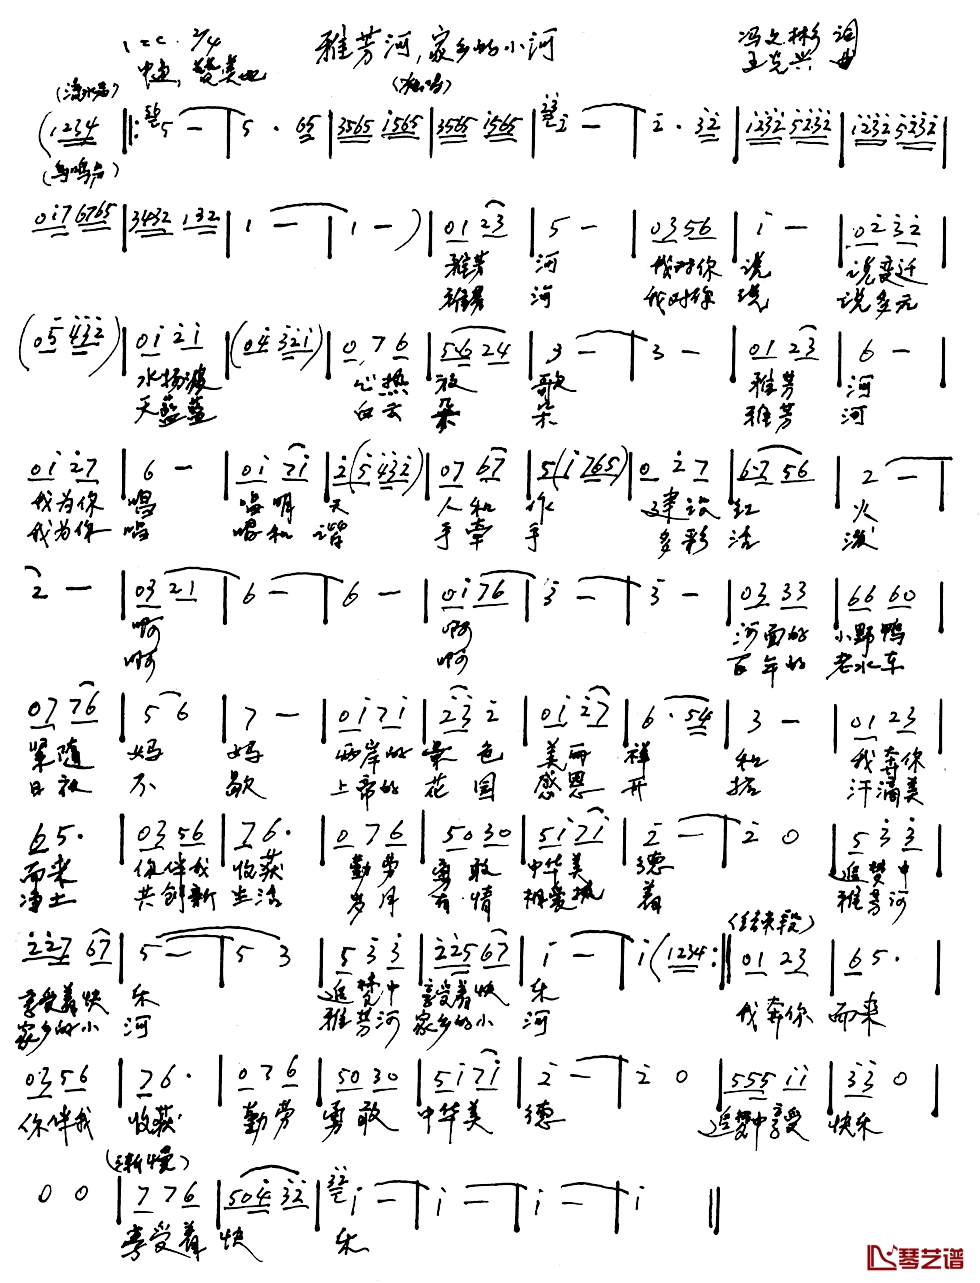 1=C 2/4 雅芳河，家乡的小河 冯文彬 词
中速，赞美地 (独唱) 王克兴 曲
(流水声)
(1234 ‖: 5 — | 5 · 65 | 3565 i565 | 3565 i565 | i — | 2 · 32 | 1232 5232 | 1232 5232 |
(鸟鸣声)
0i7 6765 | 3432 132 | 1 — | 1 — ) | 01 23 | 5 — | 03 56 | i — | 02 32 |
雅芳 河 我对你 说 说变迁
雅芳 河 我对你 说 说多元
(05 432) | 0i 2i | (04 321) | 0 7 6 | 56 24 | 3 — | 3 — | 01 23 | 6 — |
水扬波 心热 放 歌 雅芳 河
天蓝蓝 白云 朵 朵 雅芳 河
0i 27 | 6 — | 0i 7i | 2 (5 432) | 07 67 | 5 (i 765) | 0 2 7 | 67 56 | 2 — |
我为你 唱 唱明 天 人和 作 建设 红 火
我为你 唱 唱和 谐 手牵 手 多彩 活 泼
2 — | 03 21 | 6 — | 6 — | 0i 76 | 3 — | 3 — | 03 33 | 66 60 |
啊 啊 河面的 小野鸭
啊 啊 百年的 老水车
07 76 | 5 6 | 7 — | 0i 7i | 23 2 | 0i 27 | 6 · 54 | 3 — | 01 23 |
紧随 妈 妈 两岸的 景 色 美丽 祥 和 我奔你
日夜 不 歇 上帝的 花 园 感恩 开 拓 汗满美
65 · | 03 56 | 76 · | 0 7 6 | 50 30 | 5i 7i | 2 — | 2 0 | 5 3 3 |
而来 你伴我 收获 勤劳 勇敢 中华美 德 追梦中
净土 共创新 生活 岁月 有情 相爱 着 雅芳河
(结束段)
227 67 | 5 — | 5 3 | 5 3 3 | 225 67 | i — | i (1234 :‖ 01 23 | 65 · |
享受着快 乐 追梦中 享受着快 乐 我奔你 而来
家乡的小 河 雅芳河 家乡的小 河
03 56 | 76 · | 0 7 6 | 50 30 | 5i 7i | 2 — | 2 0 | 555 ii | 33 0 |
你伴我 收获 勤劳 勇敢 中华美 德 追梦中享受 快乐
(渐慢)
0 0 | 7 7 6 | 504 32 | i — | i — | i — | i ‖
享受着 快 乐
琴艺谱